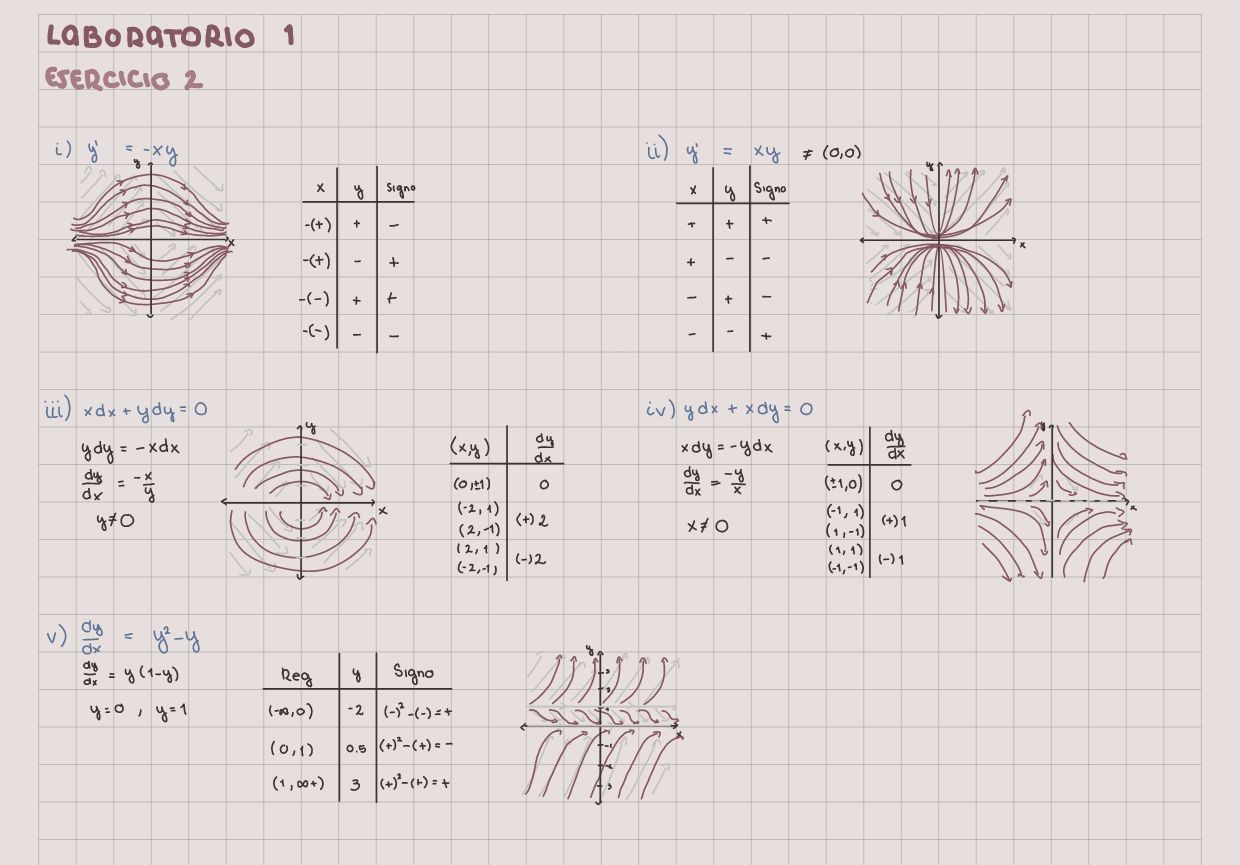 LABORATORIO 1
EJERCICIO 2
i) y' = -xy
y
x
x y Signo
-(+) + -
-(+) - +
-(-) + +
-(-) - -
ii) y' = xy ≠ (0,0)
x y Signo
+ + +
+ - -
- + -
- - +
y
x
iii) xdx + ydy = 0
ydy = -xdx
dy/dx = -x/y
y≠0
y
x
(x,y) dy/dx
(0,±1) 0
(-2, 1)
(2,-1) (+)2
(2, 1)
(-2,-1) (-)2
iv) ydx + xdy = 0
xdy = -ydx
dy/dx = -y/x
x≠0
(x,y) dy/dx
(±1,0) 0
(-1, 1)
(1,-1) (+)1
(1, 1)
(-1,-1) (-)1
y
x
v) dy/dx = y²-y
dy/dx = y(1-y)
y=0 , y=1
Reg y Signo
(-∞,0) -2 (-)²-(-)=+
(0,1) 0.5 (+)²-(+)=-
(1,∞+) 3 (+)²-(+)=+
y
3
2
1
x
-1
-2
-3